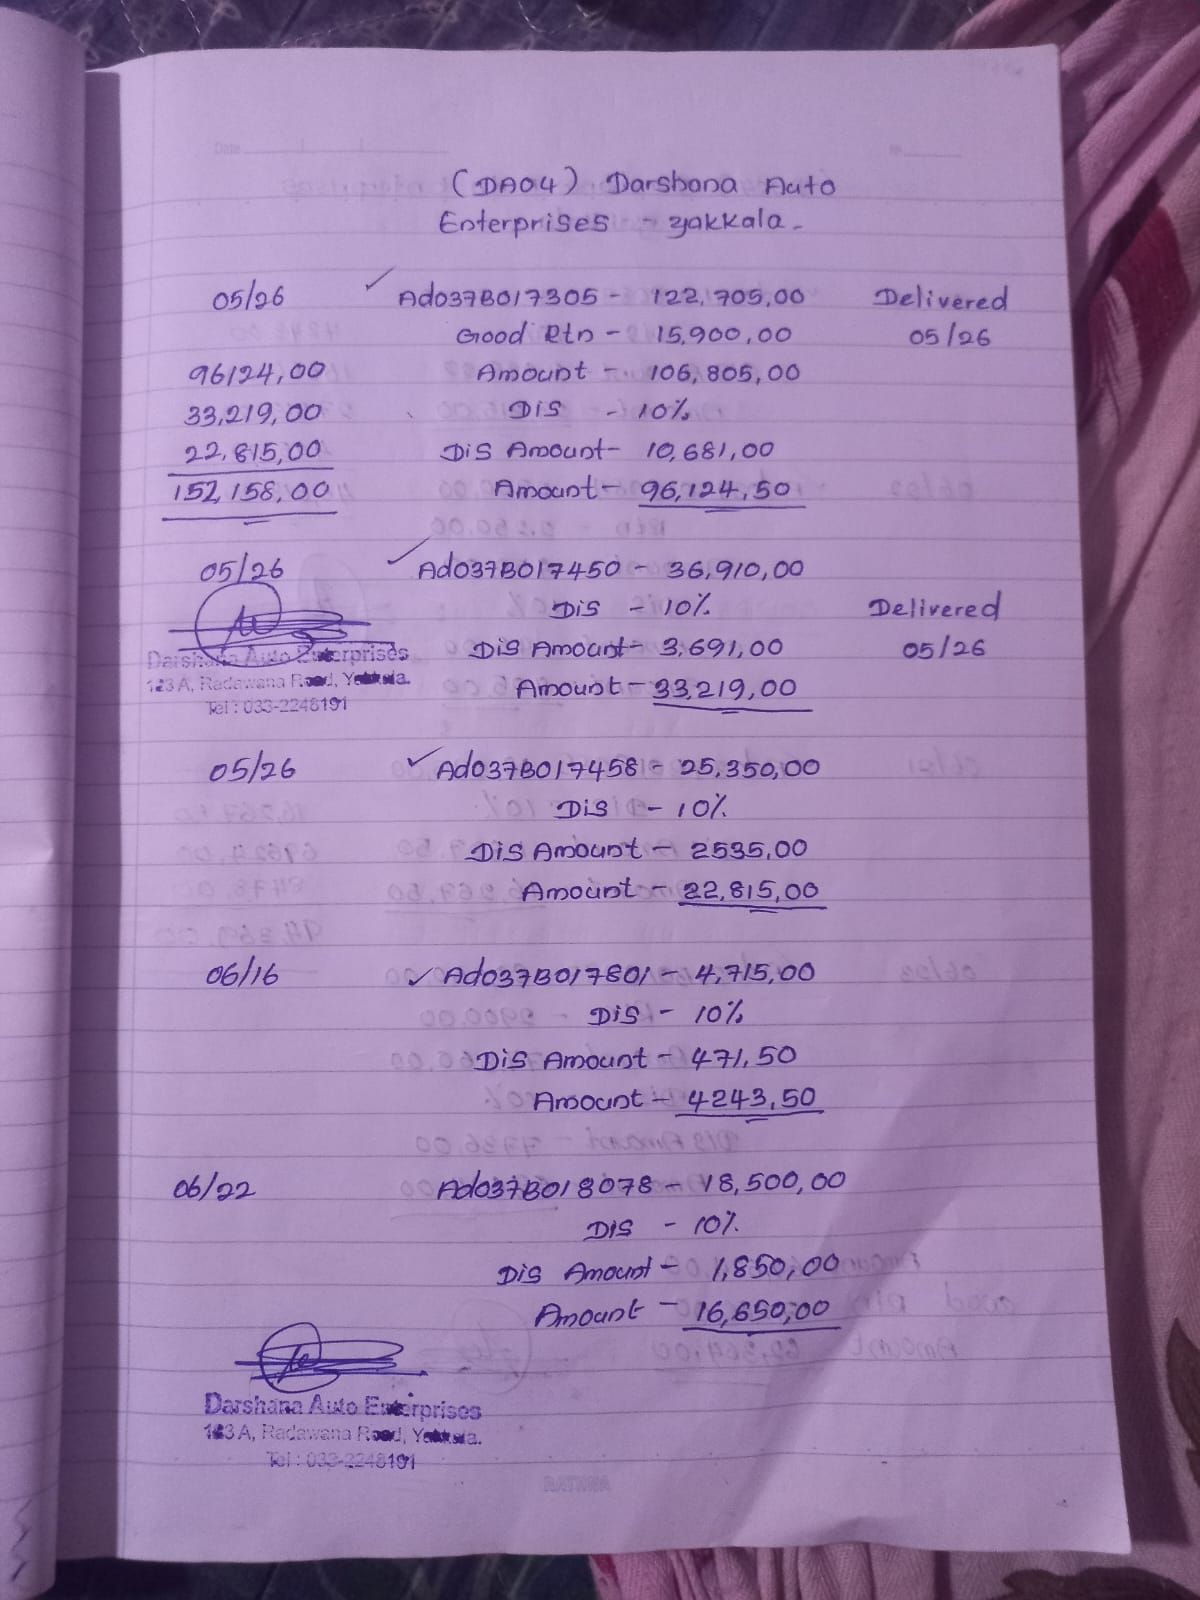 Date
(DA04) Darshana Auto
Enterprises - yakkala.
05/26 ✓ Ad037B017305 - 122,705,00 Delivered
Good Rtn - 15,900,00 05/26
96124,00 Amount - 106,805,00
33,219,00 Dis - 10%
22,815,00 Dis Amount - 10,681,00
152,158,00 Amount - 96,124,50
05/26 ✓ Ad037B017450 - 36,910,00
Dis - 10% Delivered
Dis Amount - 3,691,00 05/26
Amount - 33,219,00
Darshana Auto Enterprises
123 A, Radawana Road, Yakkala.
Tel : 033-2248191
05/26 ✓ Ad037B017458 - 25,350,00
Dis - 10%
Dis Amount - 2535,00
Amount - 22,815,00
06/16 ✓ Ad037B017801 - 4,715,00
Dis - 10%
Dis Amount - 471,50
Amount - 4243,50
06/22 Ad037B018078 - 18,500,00
Dis - 10%
Dis Amount - 1,850,00
Amount - 16,650,00
Darshana Auto Enterprises
123 A, Radawana Road, Yakkala.
Tel : 033-2248191
RATHNA